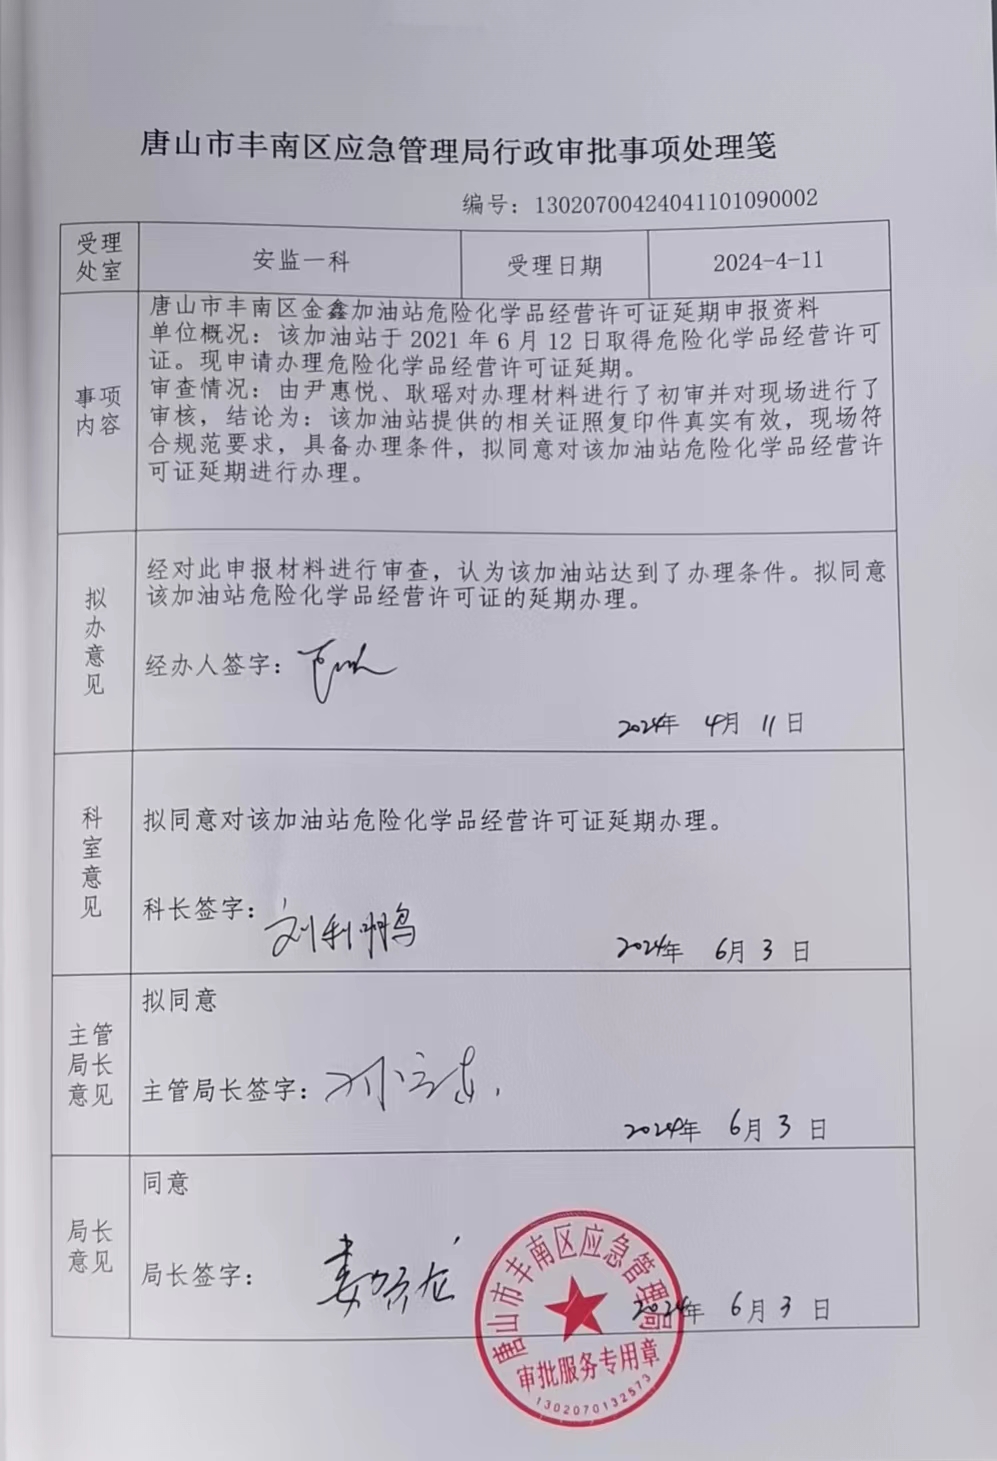 唐山市丰南区应急管理局行政审批事项处理笺
编号：13020700424041101090002
受理处室
安监一科
受理日期
2024-4-11
事项内容
唐山市丰南区金鑫加油站危险化学品经营许可证延期申报资料
单位概况：该加油站于 2021 年 6 月 12 日取得危险化学品经营许可
证。现申请办理危险化学品经营许可证延期。
审查情况：由尹惠悦、耿瑶对办理材料进行了初审并对现场进行了
审核，结论为：该加油站提供的相关证照复印件真实有效，现场符
合规范要求，具备办理条件，拟同意对该加油站危险化学品经营许
可证延期进行办理。
拟办意见
经对此申报材料进行审查，认为该加油站达到了办理条件。拟同意
该加油站危险化学品经营许可证的延期办理。
经办人签字：
2024年 4月 11日
科室意见
拟同意对该加油站危险化学品经营许可证延期办理。
科长签字：刘利鹏
2024年 6月 3日
主管局长意见
拟同意
主管局长签字：
2024年 6月 3日
局长意见
同意
局长签字：
2024年 6月 3日
唐山市丰南区应急管理局
审批服务专用章
1302070132573